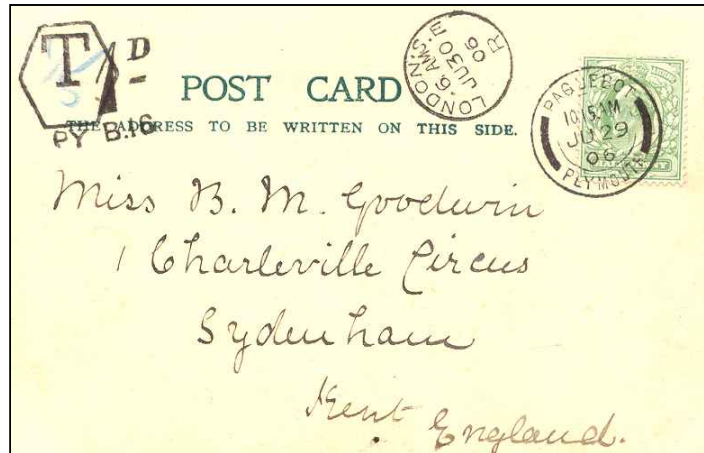 T
1D
PY B.16
POST CARD
THE ADDRESS TO BE WRITTEN ON THIS SIDE.
LONDON. S.E
6. AM
JU 30
06
R
PAQUEBOT
10.15AM
JU 29
06
PLYMOUTH
Miss B. M. Goodwin
1 Charleville Circus
Sydenham
Kent England.